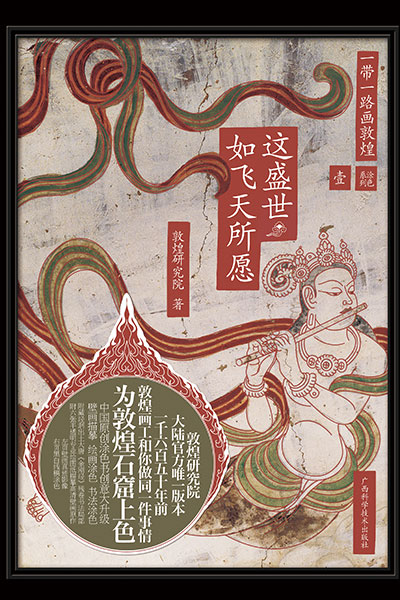 一带一路画敦煌
涂色
系列
壹
这盛世
如飞天所愿
敦煌研究院 著
敦煌研究院
大陆官方唯一版本
一千六百五十年前
敦煌画工和你做同一件事情
为敦煌石窟上色
中国原创涂色书创意大升级
壁画描摹 绘画涂色 书法涂色
广西科学技术出版社